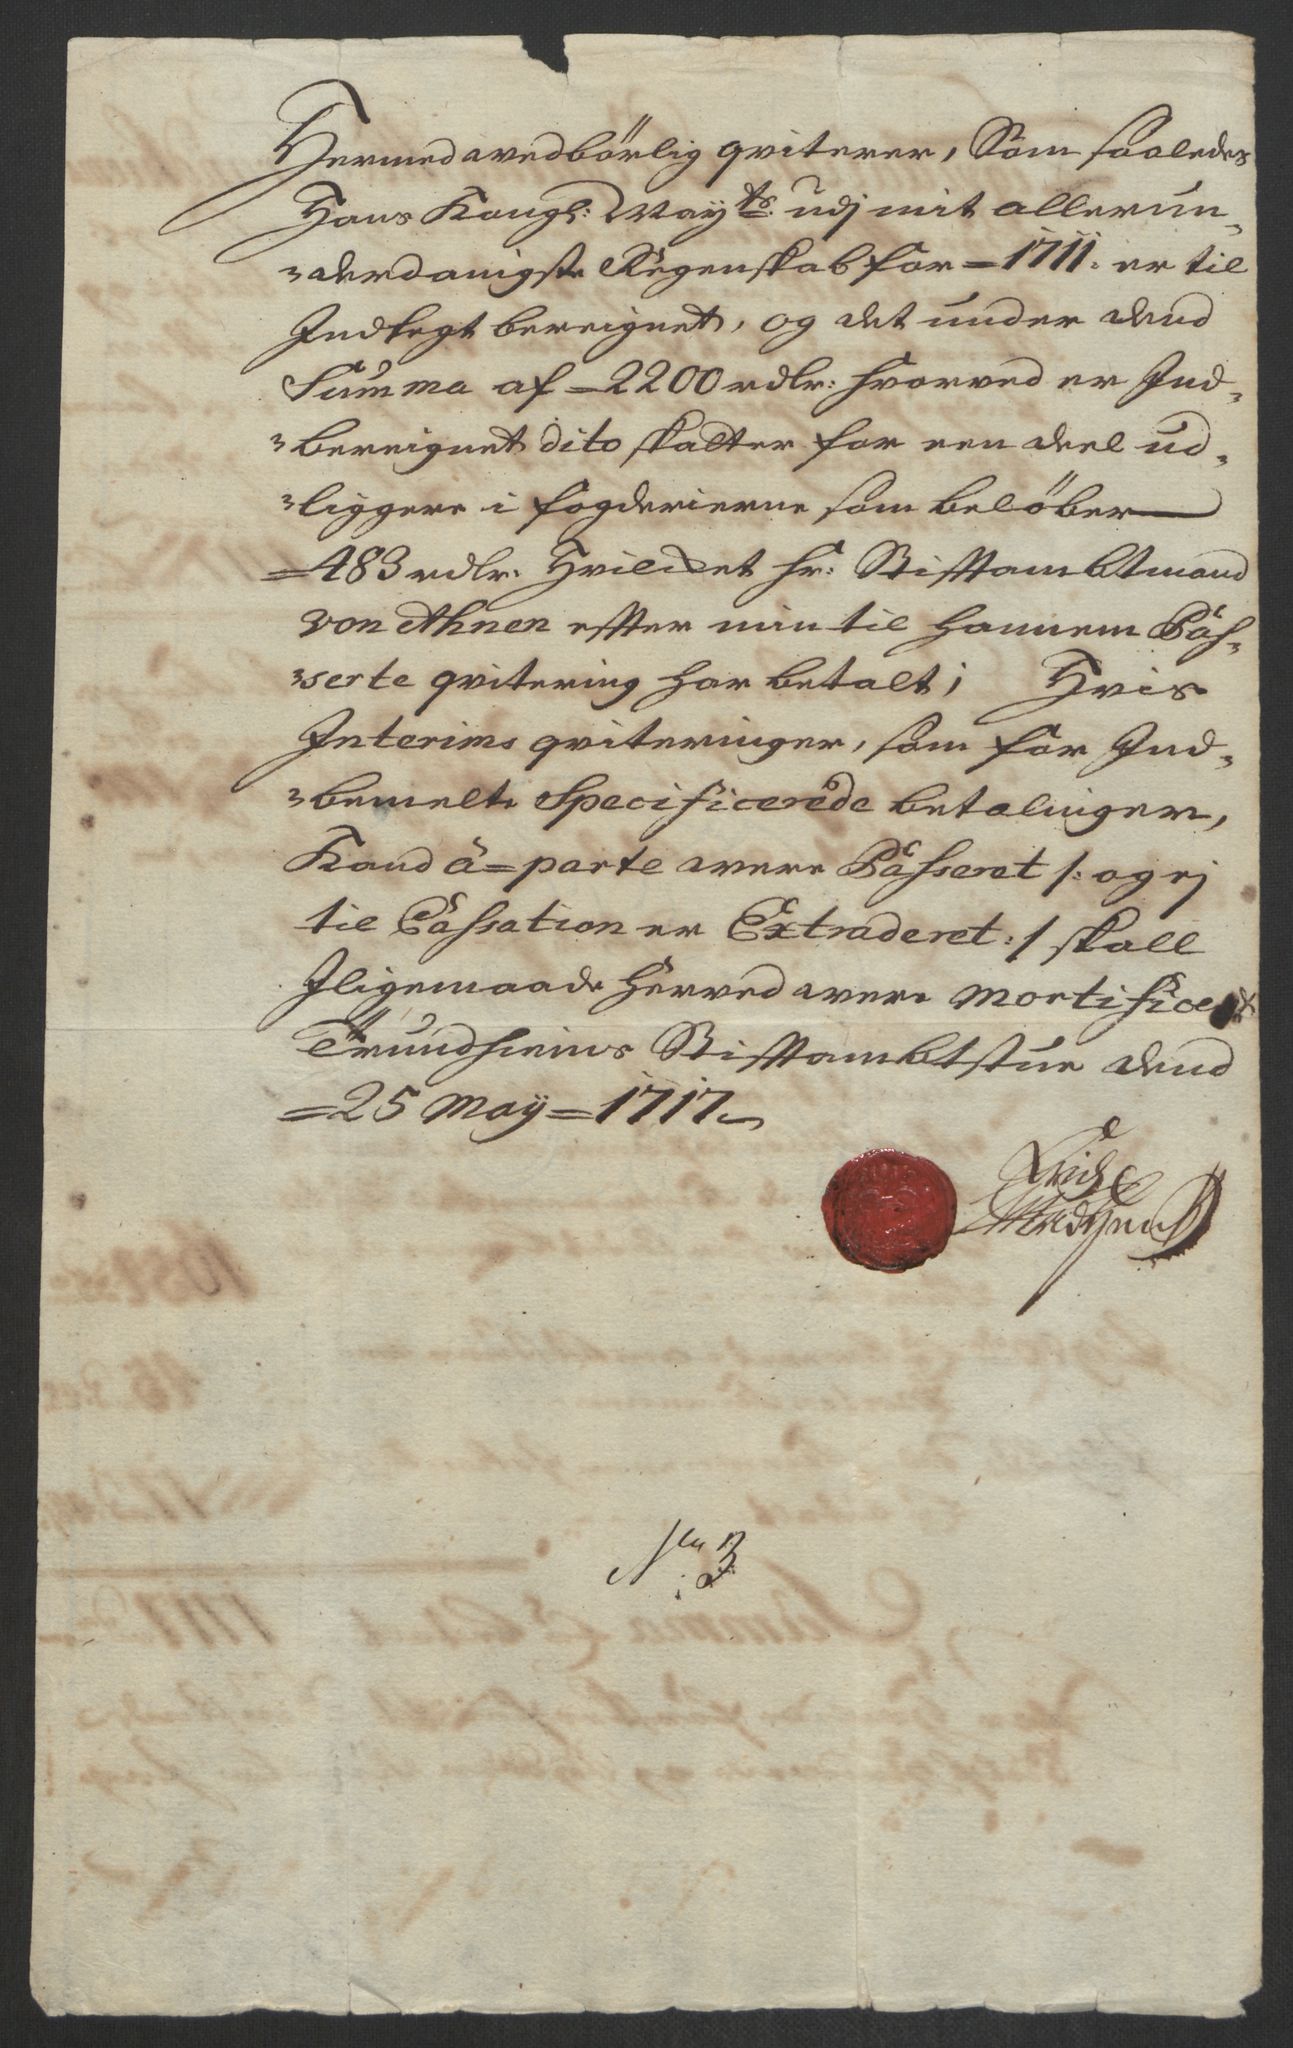 Hermed wedbörlig qviterer, Som saaledes
Hans Kongl: Mayts: udj mit allerun-
-derdanigste Regenskab for = 1711. er til
Indtegt bereignet, og det under dend
Summa af = 2200 rdlr: hvorved er Ind-
-bereignet dito skatter for een deel ud-
-liggere i fogderierne som belöber
= 483 rdlr. Hvilcket hr: Stifftambtmand
von Ahnen effter min til hannem Pas-
-serte qvitering har betalt; Hvis
Interims qviteringer, som for Ind-
-bemelte Specificerede betalinger,
Kand à = parte were Passeret /: og ej
til Cassation er Extraderet :/ skall
Iligemaade herved were Mortificeret
Trundhiems Stifftambtstue dend
= 25 May = 1717
No 3